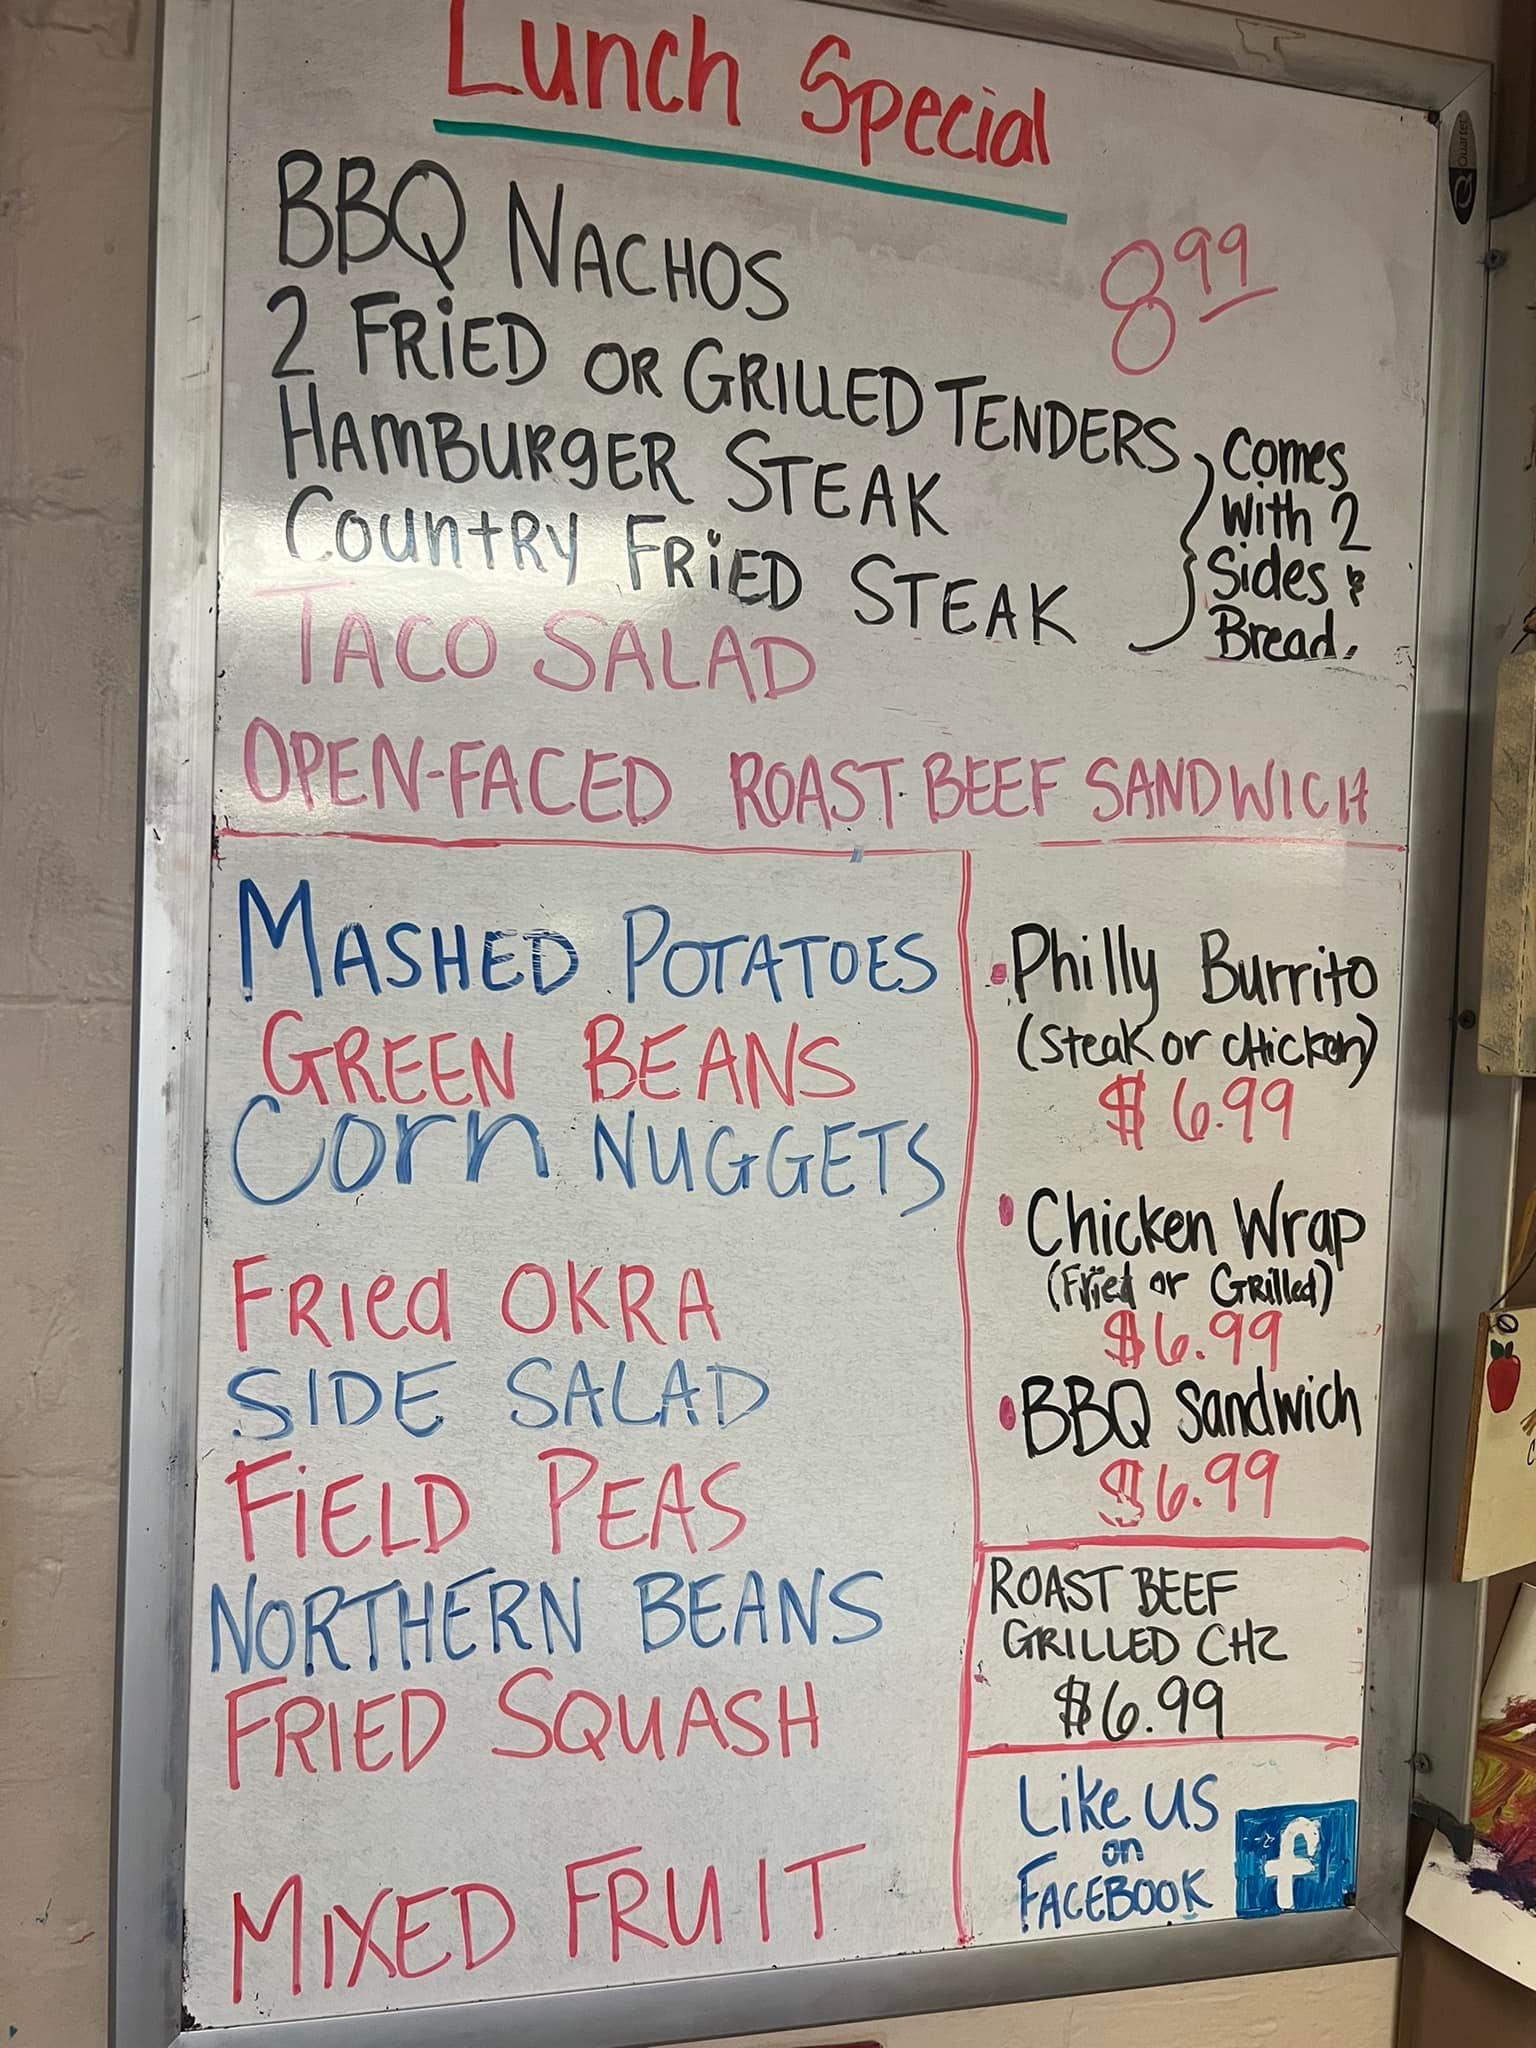 Lunch Special
BBQ NACHOS
8 99
2 FRiED OR GRILLED TENDERS
HAMBURGER STEAK
Country FRiED STEAK
Comes
with 2
Sides &
Bread.
TACO SALAD
OPEN-FACED ROAST BEEF SANDWICH
MASHED POTATOES
GREEN BEANS
Corn NUGGETS
FRied OKRA
SIDE SALAD
FiELD PEAS
NORTHERN BEANS
FRIED SQUASH
MIXED FRUIT
• Philly Burrito
(Steak or chicken)
$6.99
• Chicken Wrap
(Fried or Grilled)
$6.99
• BBQ Sandwich
$6.99
ROAST BEEF
GRILLED CHZ
$6.99
Like us
on
FACEBOOK
f
Quartet